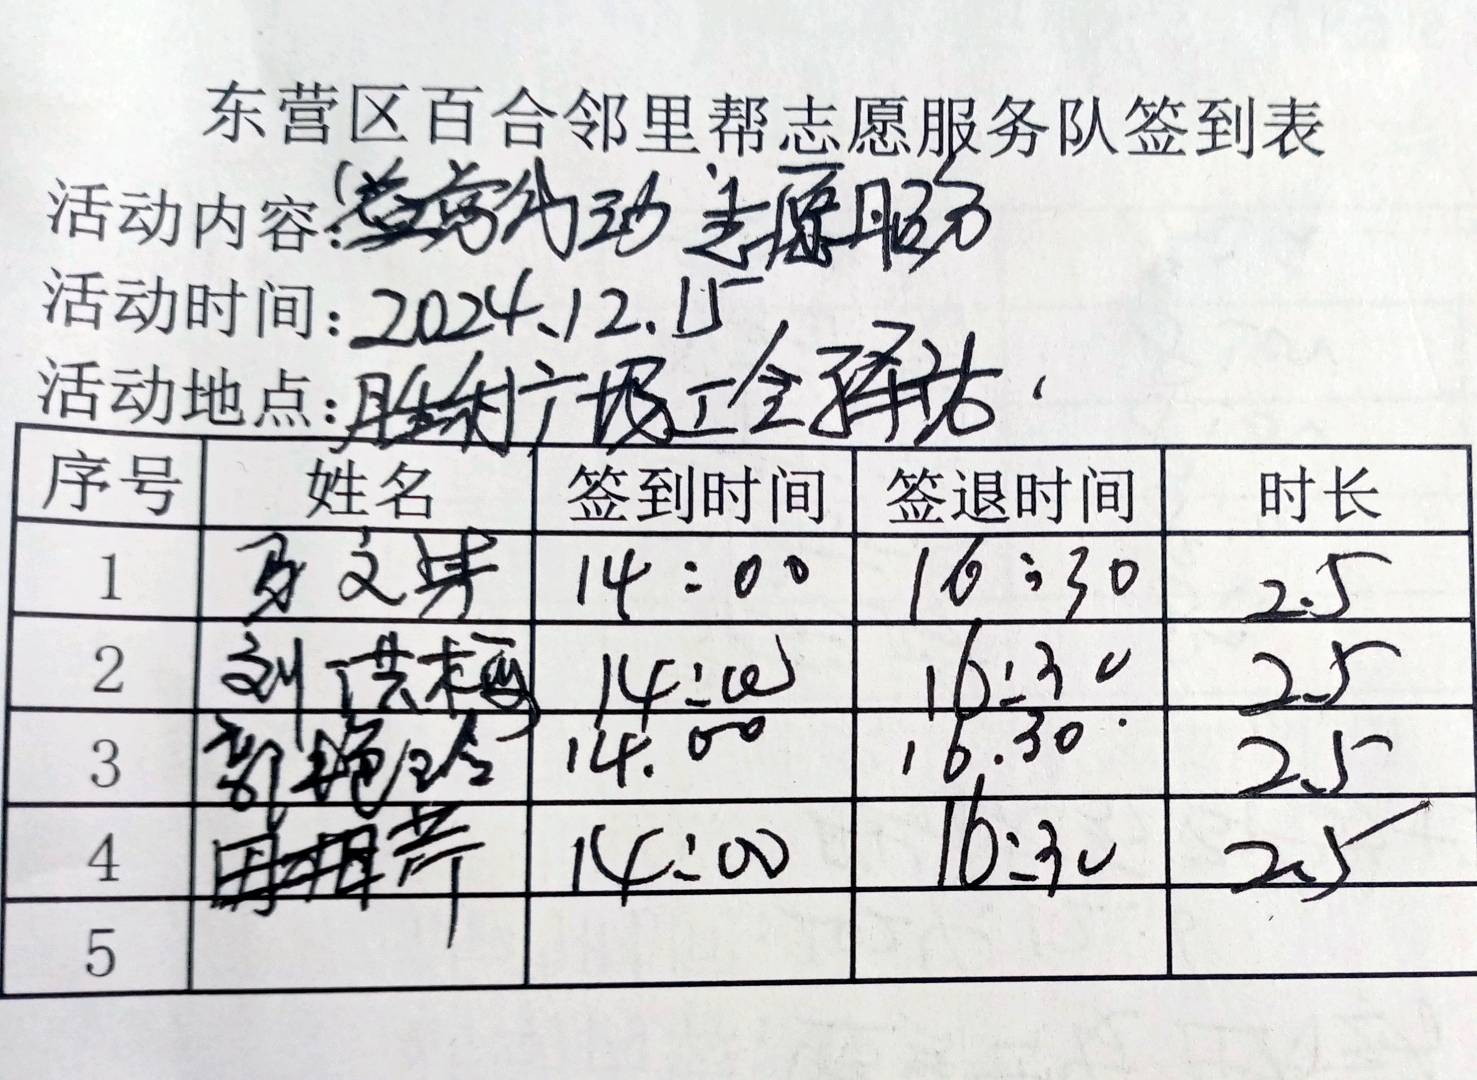 东营区百合邻里帮志愿服务队签到表
活动内容:志愿服务
活动时间:2024.12.15
活动地点:胜利广场工会驿站
序号 姓名 签到时间 签退时间 时长
1 文 14:00 16:30 2.5
2 刘洪梅 14:00 16:30 2.5
3 郭艳玲 14.00 16.30 2.5
4 14:00 16:30 2.5
5